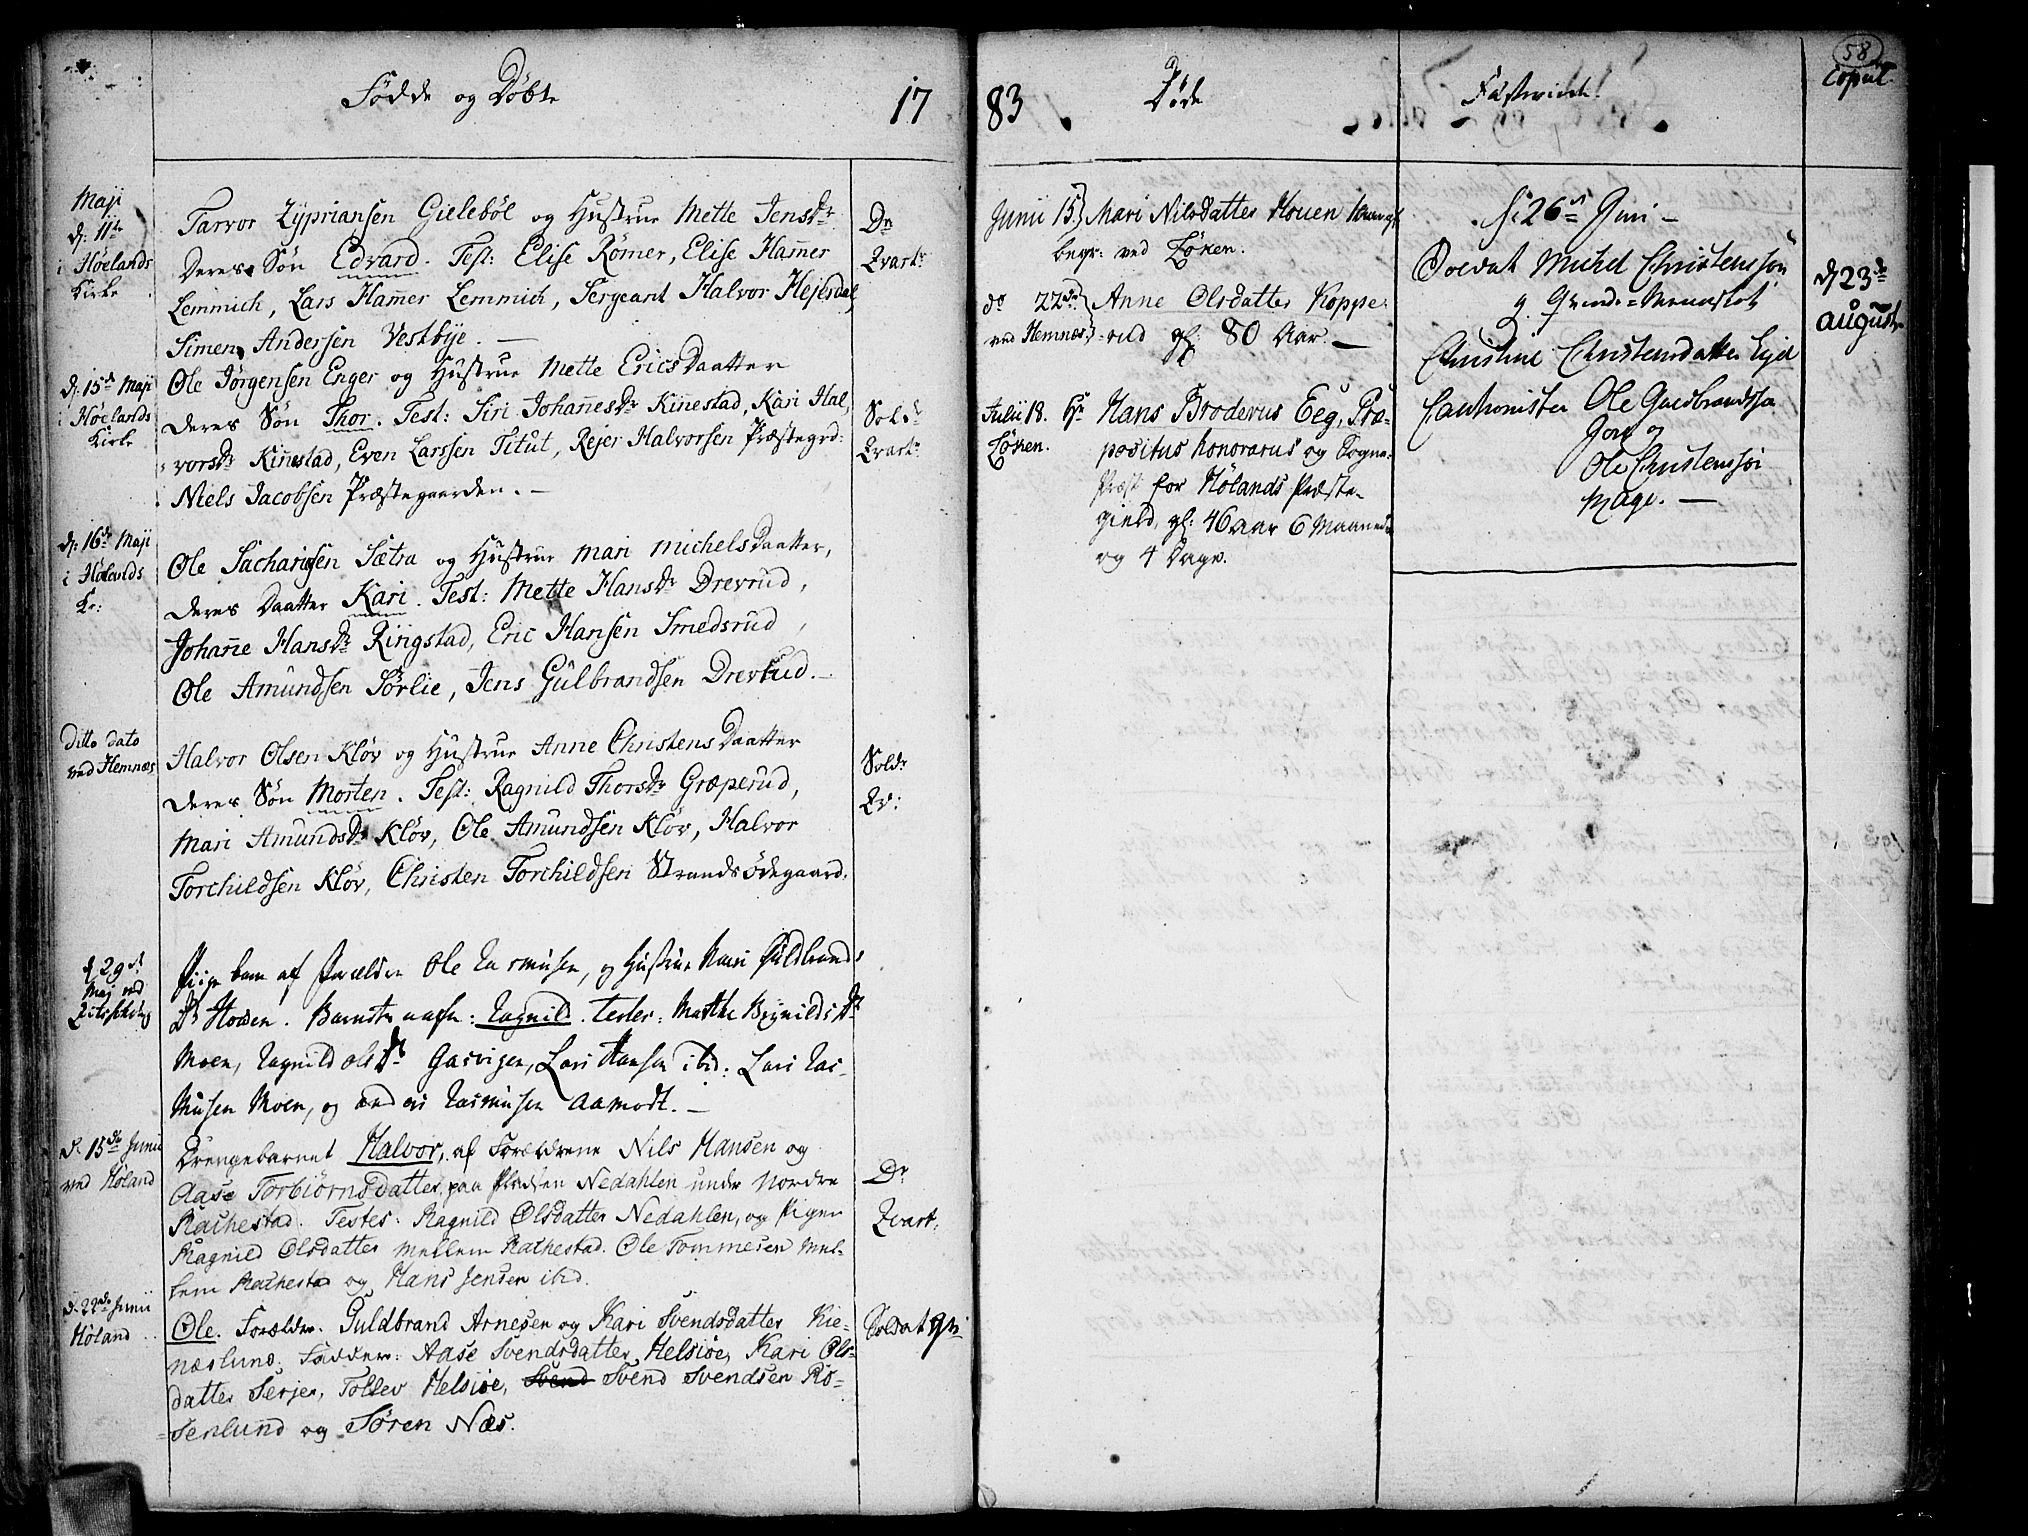 Fødde og Døbte
17
Maji
d: 11te
i Høelands
Kirke
Tarvor Zypriansen Gielebøl og Hustrue Mette Jensdr
Deres Søn Edvard. Test: Elise Römer, Elise Hamer
Lemmich, Lars Hamer Lemmich, Sergeant Halvor Hejesdal,
Simen Andersen Vestbye. —
Dr
Qvart:
d: 15de Maji
i Høelands
Kirke
Ole Jörgensen Enger og Hustrue Mette EricsDaatter
deres Søn Thor. Test: Siri Johanesdr Kinestad, Kari Hal-
vorsdr Kinestad, Even Larssen Titut, Rejer Halvorsen Præstegrd:
Niels Jacobsen Præstegaarden. —
Soldr
Qvart:
d: 16de Maji
i Hølands
Kr:
Ole Sacharisen Sætra og Hustrue Mari MichelsDaatter,
deres Daatter Kari. Test: Mette Hansdr Drevrud,
Johane Hansdr Ringstad, Eric Hansen Smedsrud,
Ole Amundsen Sörlie, Jens Gulbrandsen Drevrud. —
Ditto dato
ved Hemnæs
Halvor Olsen Kløv og Hustrue Anne ChristensDaatter
deres Søn Morten. Test: Ragnild Thorsdr Græperud,
Mari Amundsdr Kløv, Ole Amundsen Kløv, Halvor
Torchildsen Kløv, Christen Torchildsen Strandsödegaard.
Soldr
Qv:
d 29de
Maj ved
Pige barn af Forældre Ole Rasmusen, og Hustrue Mari Guldbrands
Dr Hoden. Barnets nafn: Ragnild. Testes: Marthe
Moen, Ragnild Olsdr Gasvigen, Lars Hansen ibid: Lars Ras-
musen Moen, og Anders Rasmusen Aamodt. —
d. 15de Junii
ved Høland
Drengebarnet Halvor, af Forældrene Nils Hansen og
Aase Torbiörnsdatter paa Pladsen Nedahlen under Nordre
Rachestad. Testes: Ragnild Olsdatter Nedahlen, og Pigen
Ragnild Olsdatter Mellem Rachestad. Ole Tommesen Mel-
lem Rachestad og Hans Jensen ibid.
Dr
Qvart:
d. 22de Junii
Høland
Ole. Forældre. Guldbrand Arnesen og Kari Svendsdatter Kie-
næslund. Faddere: Aase Svendsdatter Helsiøe, Kari Ols-
datter Serjer, Tollev Helsiøe, Svend Svend Svendsen Ro-
senlund og Sören Næs.
Soldat
83
Døde
Junii 15. Mari Nilsdatter Houen
begr: ved Løken.
do 22de Anne Olsdatter Koppe-
ved Hemnæs -rud gl: 80 Aar. —
Julii 18. Hr Hans Broderus Eeg, Præ-
Løken. positus honorarus og Sogne-
Præst for Hølands Præste-
gield, gl: 46 Aar 6 Maaneder
og 4 Dage.
58
Copul.
d: 26de Juni —
Soldat Michel Christenssön
Christine Christensdatter
Cautionister Ole Guldbrandssøn
og
Ole Christenssøn
d 23de
august